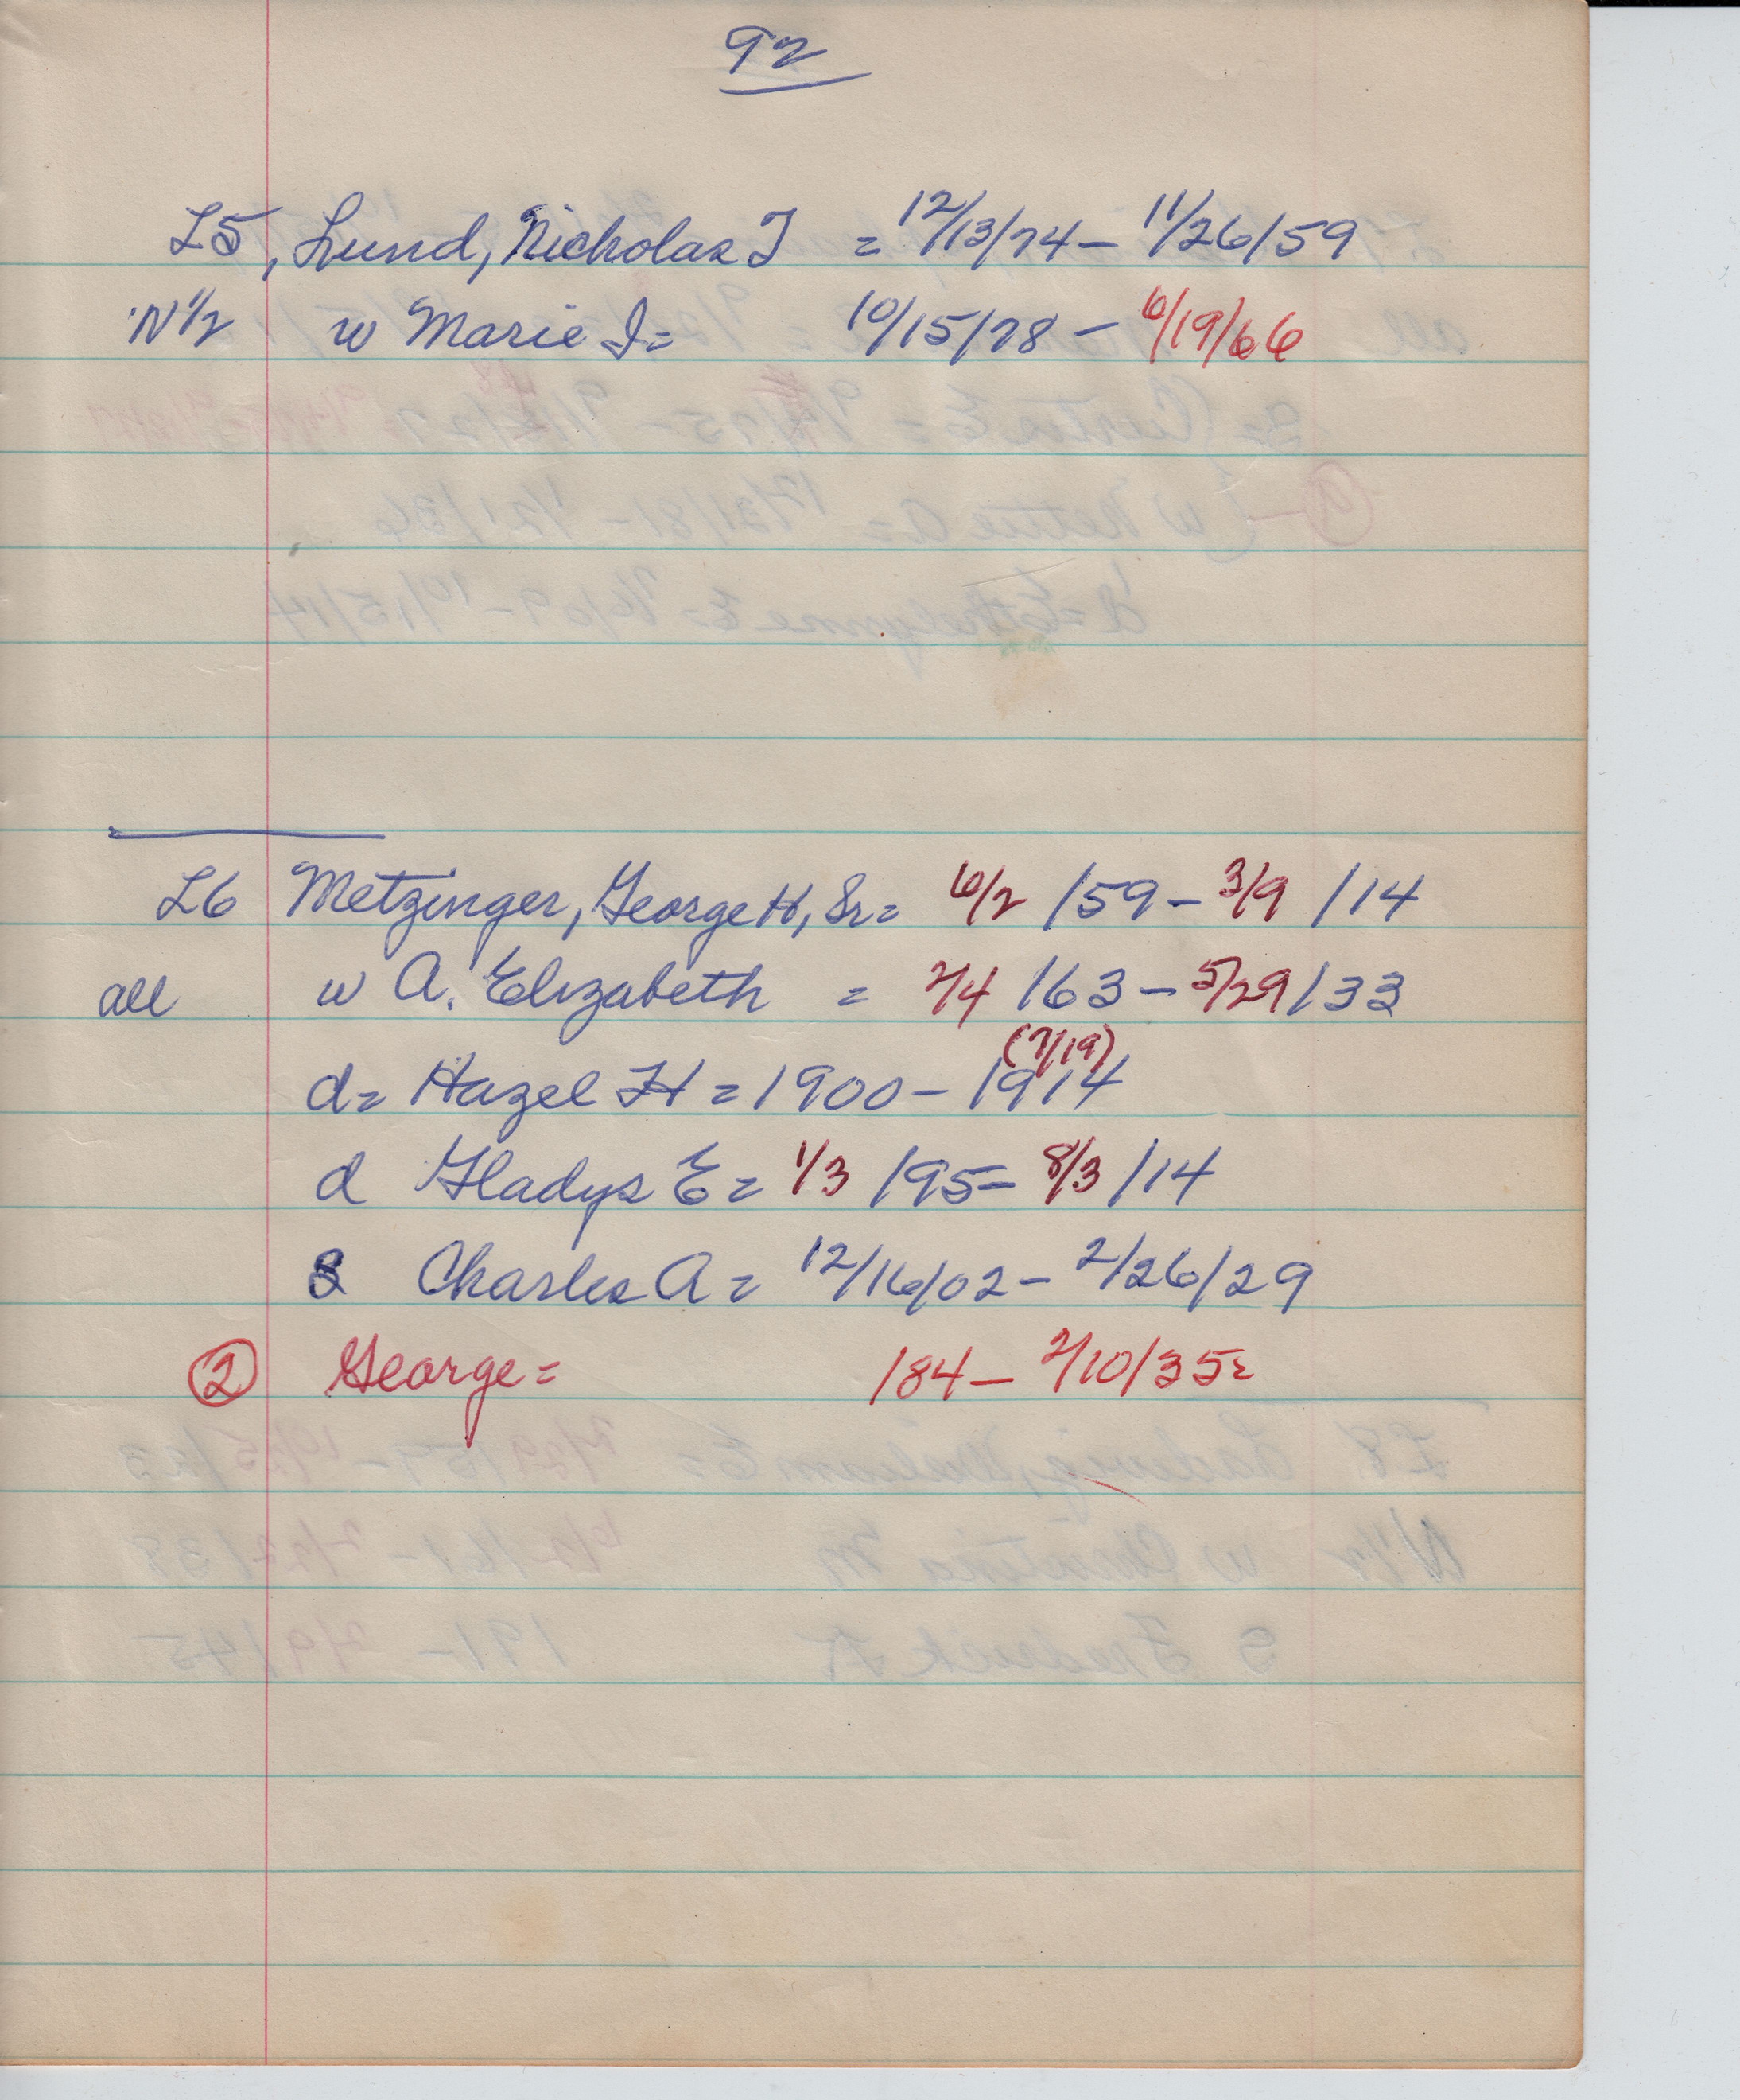 92
L5, Lund, Nicholas J = 12/13/74 - 11/26/59
N 1/2 w Marie I = 10/15/78 - 6/19/66
L6 Metzinger, George H, Sr = 6/2 /59 - 3/9 /14
all w A. Elizabeth = 7/4 /63 - 5/29/33
(7/19)
d = Hazel H = 1900 - 1914
d Gladys E = 1/3 /95 = 8/3 /14
S Charles A = 12/16/02 - 2/26/29
2 George = /84 - 2/10/35